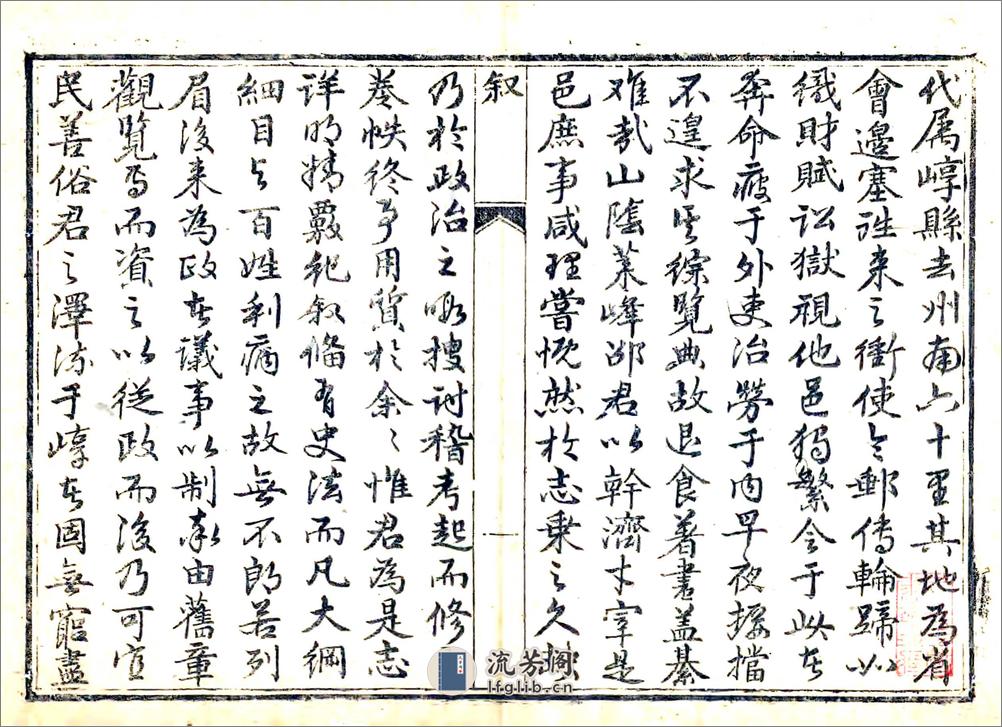 代属崞縣去州南六十里其地為省
會邊塞往来之衝使令郵傳輪蹄以
織財賦訟獄視他邑独繁令于此者
奔命疲于外吏治勞于内早夜擾擋
不遑求其綜覧典故退食著書盖綦
难哉山陰菜峰邵君以幹濟才宰是
邑庶事咸理嘗慨然於志乗之久
叙
一
乃於政治之暇搜討稽考起而修
巻帙終事用質於余〻惟君為是志
详明精覈紀叙備有史法而凡大綱
細目与百姓利病之故無不朗若列
眉後来為政者議事以制率由舊章
觀覧焉而資之以従政而後乃可宜
民善俗君之澤流于崞者固無窮盡
流芳阁
lfglib.cn